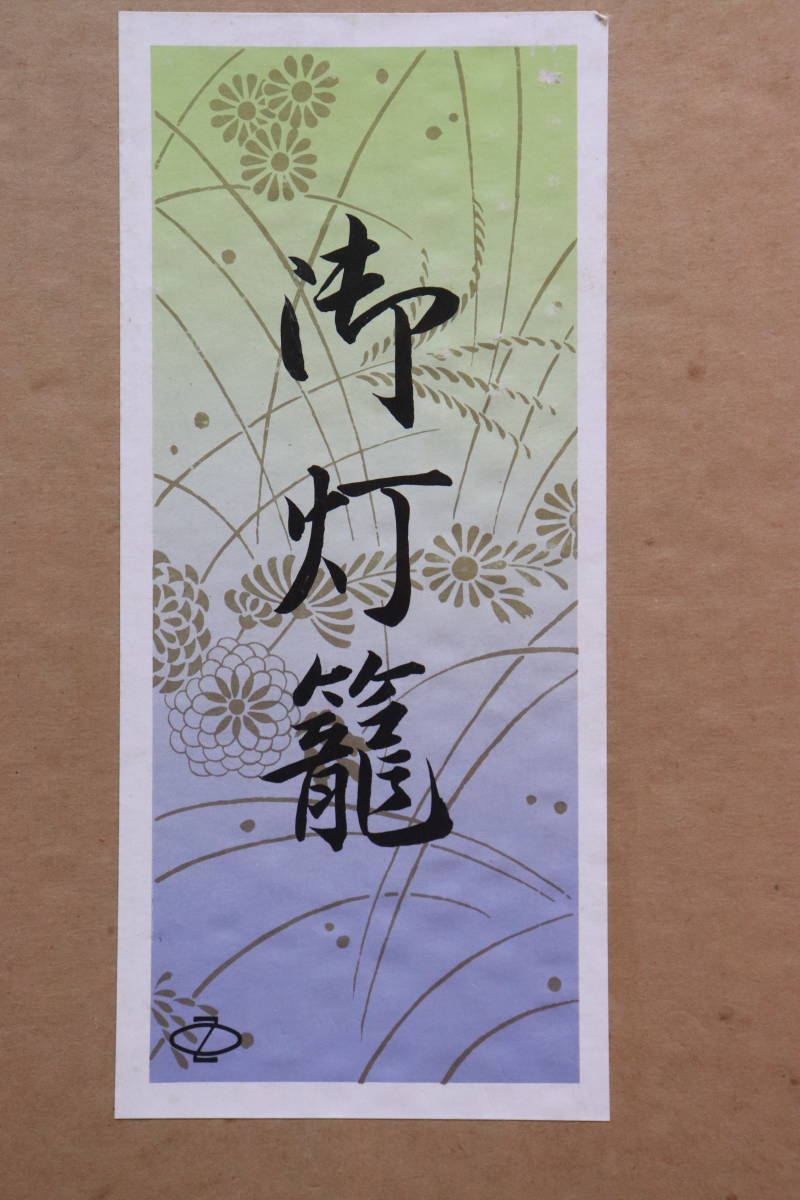 御灯籠